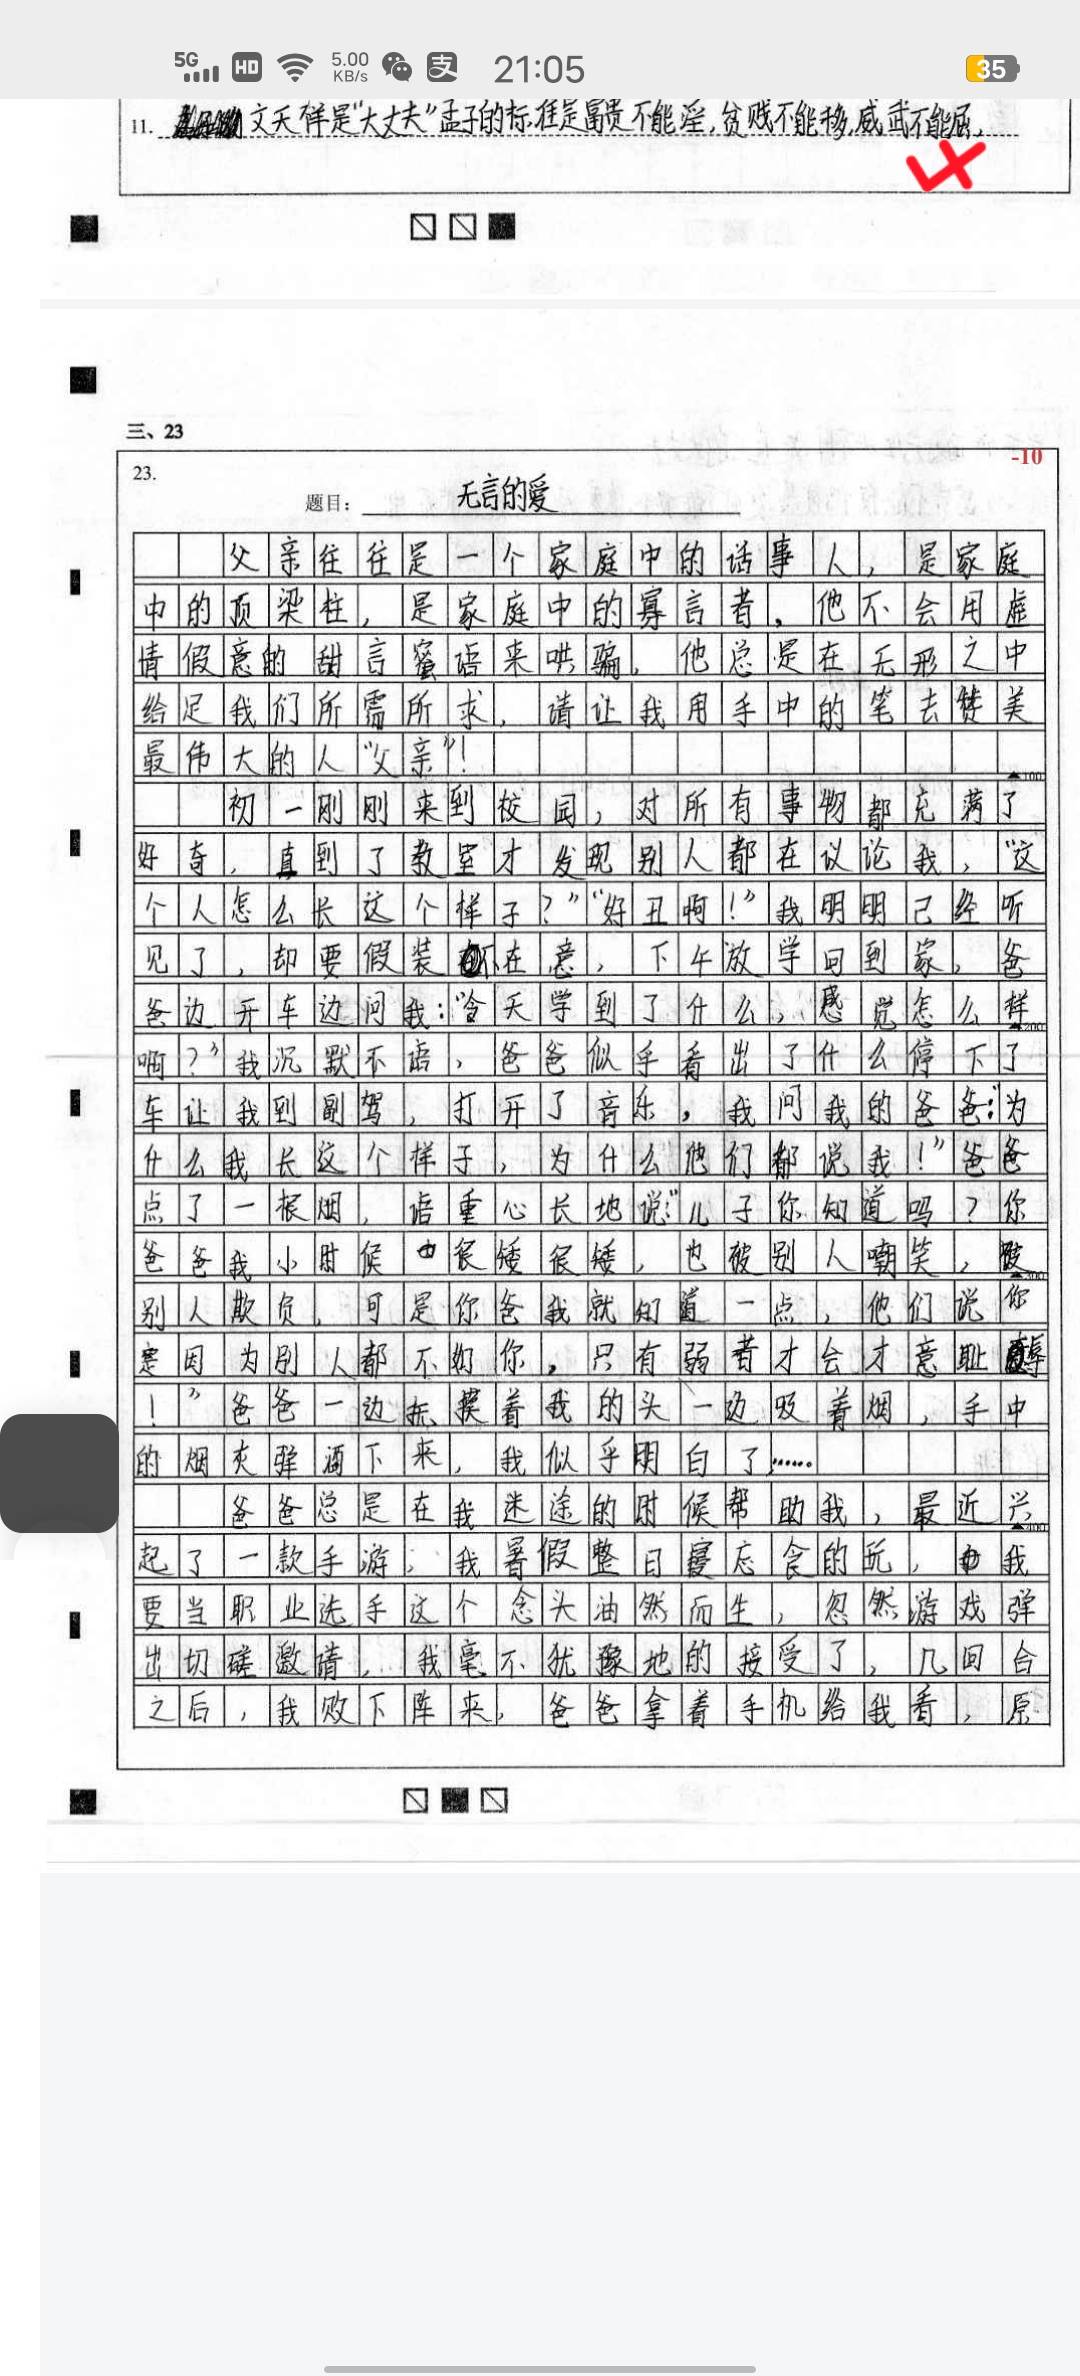 5G HD 5.00 KB/s 支 21:05 35
11. 文天祥是“大丈夫”孟子的标准是富贵不能淫,贫贱不能移,威武不能屈.
三、23
-10
23.
题目: 无言的爱
父亲往往是一个家庭中的话事人，是家庭
中的顶梁柱，是家庭中的寡言者，他不会用虚
情假意的甜言蜜语来哄骗，他总是在无形之中
给足我们所需所求，请让我用手中的笔去赞美
最伟大的人“父亲”！
100
初一刚刚来到校园，对所有事物都充满了
好奇，直到了教室才发现别人都在议论我，“这
个人怎么长这个样子？”“好丑啊！”我明明已经听
见了，却要假装不在意，下午放学回到家，爸
爸边开车边问我：“今天学到了什么，感觉怎么样
200
啊？”我沉默不语，爸爸似乎看出了什么停下了
车让我到副驾，打开了音乐，我问我的爸爸：“为
什么我长这个样子，为什么他们都说我！”爸爸
点了一根烟，语重心长地说：“儿子你知道吗？你
爸爸我小时候也很矮很矮，也被别人嘲笑，被
300
别人欺负，可是你爸我就知道一点，他们说你
是因为别人都不如你，只有弱者才会才意耻辱
！”爸爸一边抚摸着我的头一边吸着烟，手中
的烟灰弹洒下来，我似乎明白了……
爸爸总是在我迷途的时候帮助我，最近兴
400
起了一款手游，我暑假整日寝忘食的玩，我
要当职业选手这个念头油然而生，忽然游戏弹
出切磋邀请，我毫不犹豫地的接受了，几回合
之后，我败下阵来，爸爸拿着手机给我看，原